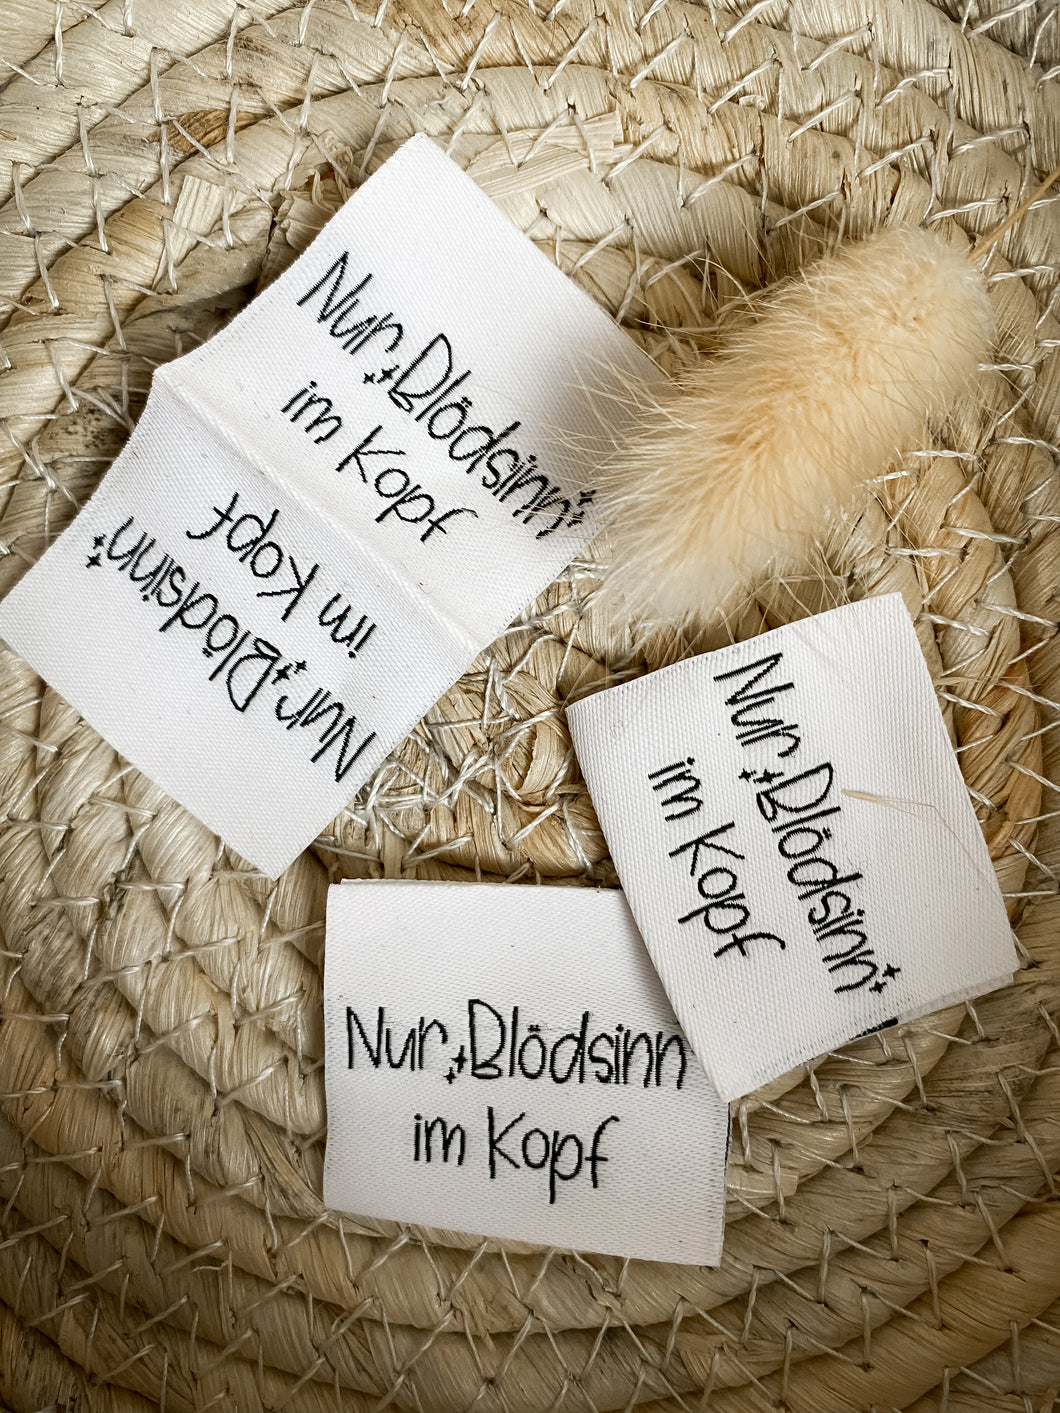 Nur Blödsinn
im Kopf
Nur Blödsinn
im Kopf
Nur Blödsinn
im Kopf
Nur Blödsinn
im Kopf